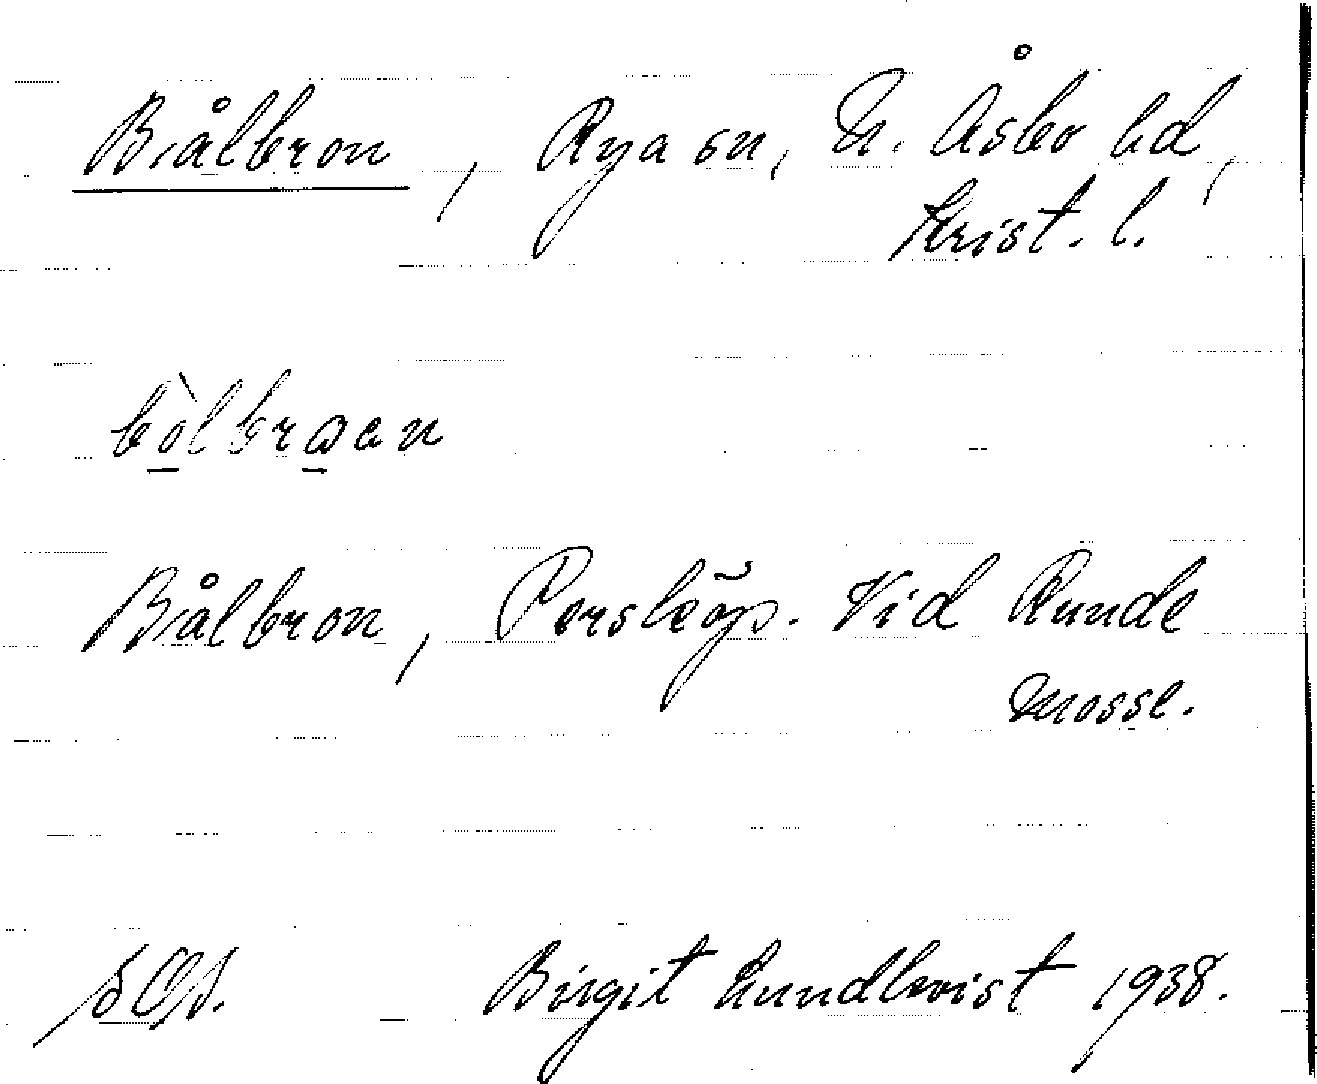 Bålbron, Rya sn, N. Åsbo hd,
Krist. l.
bòlbroen
Bålbron, Porsköp. Vid Runde
mosse.
Birgit Lundkvist 1938.